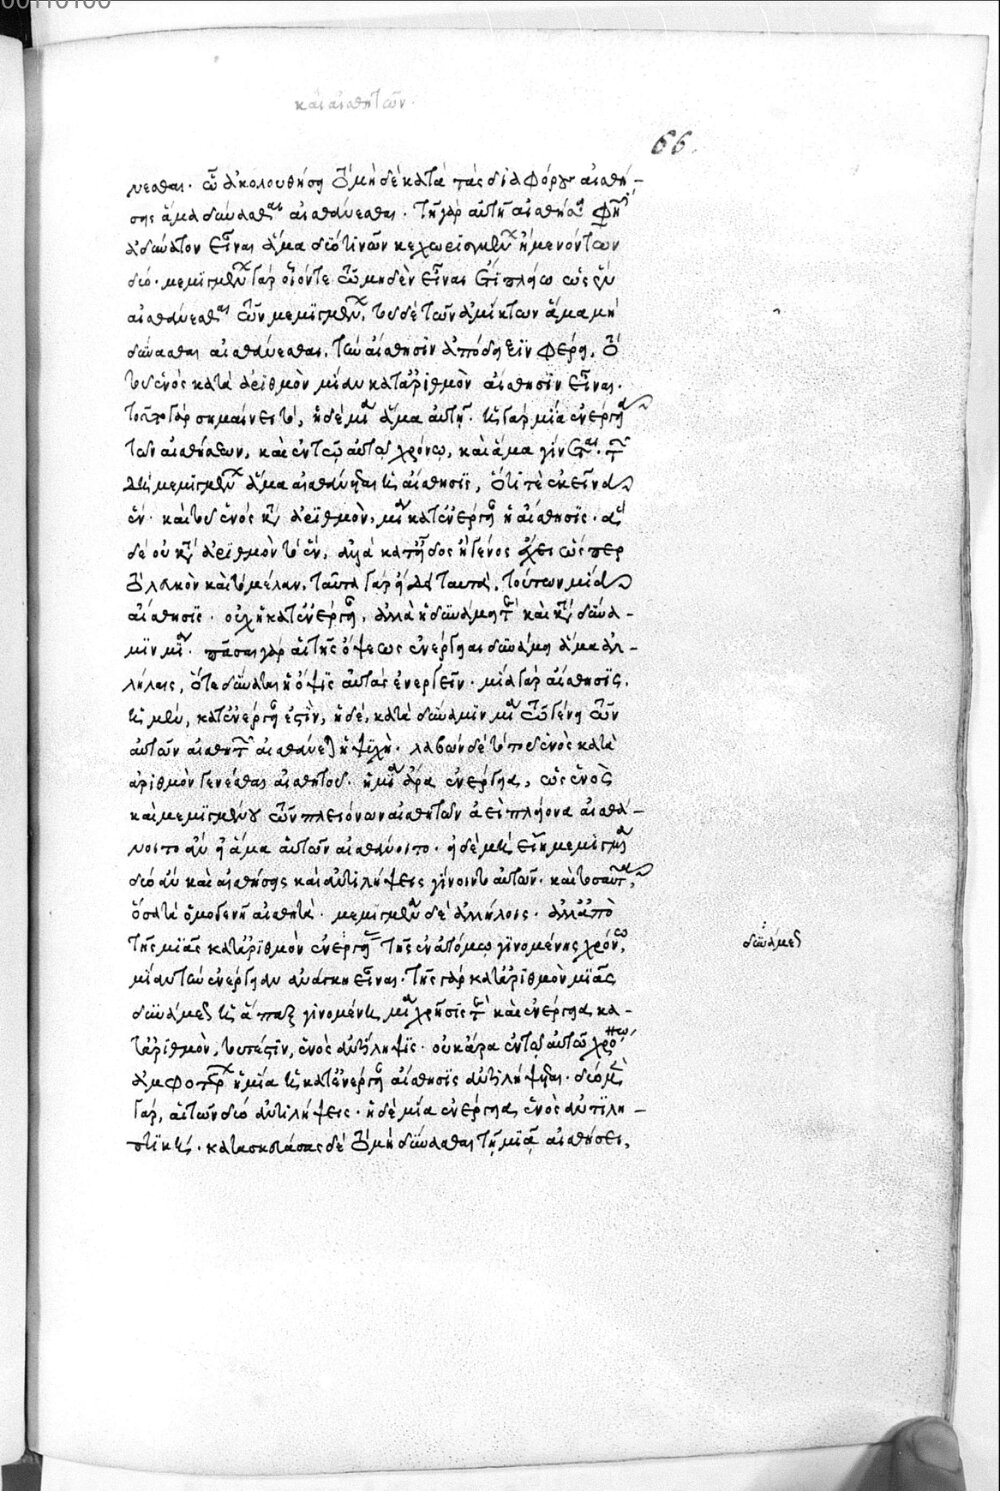 00110100
καὶ αἰσθητῶν.
66.
νεσθαι. ᾧ ἀκολουθήσει τὸ μηδὲ κατὰ τὰς διαφόρους αἰσθή-
σεις ἅμα δύνασθαι αἰσθάνεσθαι. τῇ γὰρ αὐτῇ αἰσθήσει φησὶν
ἀδύνατον εἶναι ἅμα δύο τινῶν κεχωρισμένων ἢ μενόντων
δύο. μεμιγμένων γὰρ οἷόν τε τῷ μηδὲν εἶναι ἔτι πλείω ὡς ἓν
αἰσθάνεσθαι τῶν μεμιγμένων, τοῦ δὲ τῶν ἀμίκτων ἅμα μὴ
δύνασθαι αἰσθάνεσθαι, τὴν αἴσθησιν ἀπόδειξιν φέρει, τὸ
τοῦ ἑνὸς κατὰ ἀριθμὸν μίαν κατ' ἀριθμὸν αἴσθησιν εἶναι.
τοῦτο γὰρ σημαίνει τὸ, ἡ δὲ μία ἅμα αὐτῇ. ἡ γὰρ μία ἐνέργεια
τῶν αἰσθήσεων, καὶ ἐν τῷ αὐτῷ χρόνῳ, καὶ ἅμα γίνεται.
διὸ μεμιγμένων ἅμα αἰσθάνεται ἡ αἴσθησις, ὅτι τὲ ἐκεῖνα
ἕν. καὶ τοῦ ἑνὸς κατ' ἀριθμὸν, μία κατ' ἐνέργειαν ἡ αἴσθησις.
δὲ οὐ κατ' ἀριθμὸν τὸ ἕν, ἀλλὰ κατ' εἶδος ἢ γένος ἔχει ὥσπερ
τὸ λευκὸν καὶ τὸ μέλαν, ταῦτα γὰρ εἴδει ταυτά, τούτων μία
αἴσθησις. οὐχ ἡ κατ' ἐνέργειαν, ἀλλὰ ἡ δυνάμει καὶ κατὰ δύνα-
μιν μία. πᾶσαι γὰρ αἱ τῆς ὄψεως ἐνέργειαι δυνάμει ἅμα ἀλ-
λήλαις, ὅτε δύναται ἡ ὄψις αὐτὰς ἐνεργεῖν. μία γὰρ αἴσθησις,
ἡ μὲν, κατ' ἐνέργειαν ἐστὶν, ἡ δὲ, κατὰ δύναμιν μία τῷ γένει τῶν
αὐτῶν αἰσθητῶν αἰσθάνεται ἡ ψυχὴ. λαβὼν δὲ τὸ ὑπὸ ἑνὸς κατὰ
ἀριθμὸν γενέσθαι αἰσθητοῦ. ἡ μία ἄρα ἐνέργεια, ὡς ἑνὸς
καὶ μεμιγμένου τῶν πλειόνων αἰσθητῶν ἀεὶ πλείονα αἰσθά-
νοιτο ἂν ἢ ἅμα αὐτῶν αἰσθάνοιτο. εἰ δὲ μὴ εἴη μεμιγμένα
δύο ἂν καὶ αἰσθήσεις καὶ ἀντιλήψεις γίνοιντο αὐτῶν. καὶ τοσαῦται,
ὅσα τὰ ὁμογενῆ αἰσθητὰ. μεμιγμένα δὲ ἀλλήλοις. ἀλλ' ἀπὸ
τῆς μιᾶς κατ' ἀριθμὸν ἐνεργείας τῆς ἐν ἀτόμῳ γινομένης χρόνῳ,
μίαν τὴν ἐνέργειαν ἀνάγκη εἶναι. τῆς γὰρ κατ' ἀριθμὸν μιᾶς
δυνάμεως ἡ ἅπαξ γινομένη, μία χρῆσίς καὶ ἐνέργεια κα-
τ' ἀριθμὸν, τουτέστιν, ἑνὸς ἀντίληψις. οὐκ ἄρα ἐν τῷ αὐτῷ χρόνῳ
ἀμφοτέρων ἡ μία ἡ κατ' ἐνέργειαν αἴσθησις ἀντιλήψεται. δύο μὲν
γὰρ, αἱ τῶν δύο ἀντιλήψεις. ἡ δὲ μία ἐνέργεια, ἑνὸς ἀντιλη-
πτική. κατασκευάσας δὲ τὸ μὴ δύνασθαι τῇ μιᾷ αἰσθήσει,
δυνάμεως